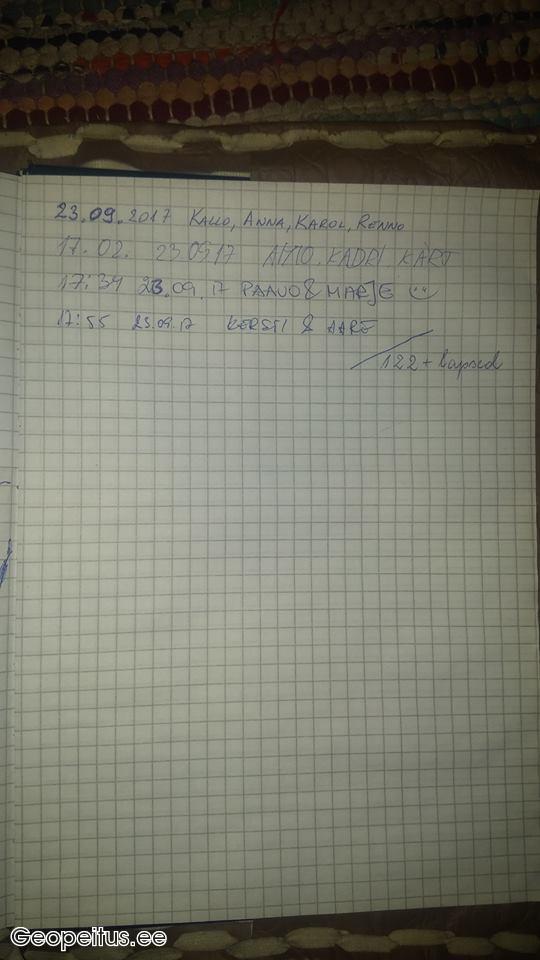 23.09.2017 KALLO, ANNA, KAROL, RENNO
17.02. 23.09 17 AIVO, KADRI KÄRT
17:34 23.09.17 PAAVO & MARJE
17:55 23.09.17 KERSTI & AARE
122 + lapsed
Geopeitus.ee